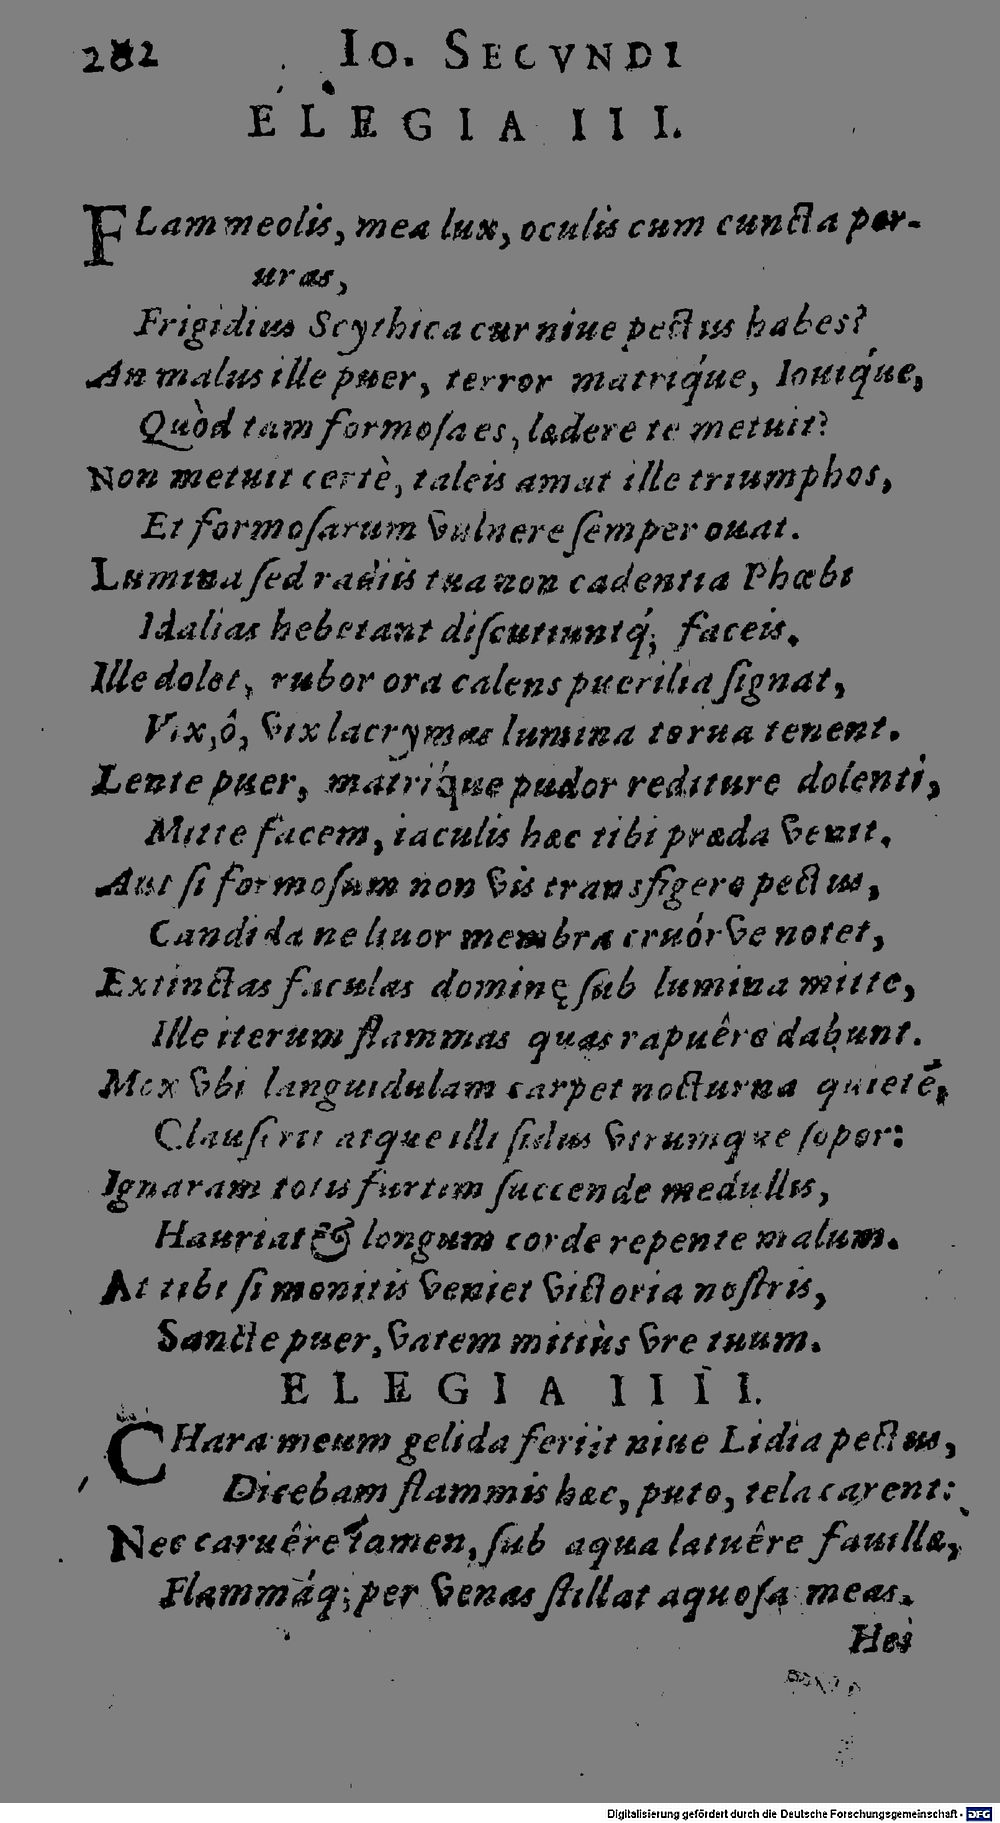 282 Io. SECVNDI
ELEGIA III.
FLammeolis, mea lux, oculis cum cuncta per-
uras,
Frigidius Scythica cur niue pectus habes?
An malus ille puer, terror matríque, Iouíque,
Quòd tam formosa es, lædere te metuit?
Non metuit certè, taleis amat ille triumphos,
Et formosarum vulnere semper ouat.
Lumina sed radiis tua non cadentia Phœbi
Idalias hebetant discutiuntq́; faceis.
Ille dolet, rubor ora calens puerilia signat,
Vix, ô, vix lacrymas lumina torua tenent.
Lente puer, matríque pudor rediture dolenti,
Mitte facem, iaculis hæc tibi præda venit.
Aut si formosum non vis transfigere pectus,
Candida ne liuor membra cruór ve notet,
Extinctas faculas dominę sub lumina mitte,
Ille iterum flammas quas rapuêre dabunt.
Mox vbi languidulam carpet nocturna quietē,
Clauserit atque illi sidus vtrumque sopor:
Ignaram totis furtim succende medullis,
Hauriat & longum corde repente malum.
At tibi si monitis veniet victoria nostris,
Sancte puer, vatem mitiùs vre tuum.
ELEGIA IIII.
CHara meum gelida feriit niue Lidia pectus,
Dicebam flammis hæc, puto, tela carent:
Nec caruêre tamen, sub aqua latuêre fauillæ,
Flammáq; per venas stillat aquosa meas.
Hei
Digitalisierung gefördert durch die Deutsche Forschungsgemeinschaft - DFG